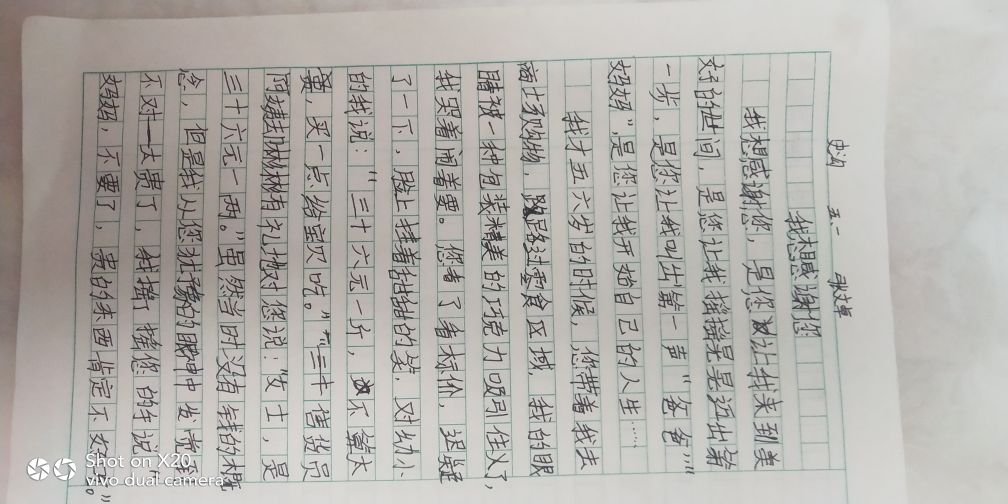 五一
我想感谢您
我想感谢您，是您让我来到美
好的世间，是您让我摇摇晃晃迈出第
一步，是您让我叫出第一声“爸爸”“
妈妈”，是您让我开始自己的人生……
我才五六岁的时候，您带着我去
商场购物，路过零食区域 我的眼
睛被一种包装精美的巧克力吸引住了，
我哭着闹着要。您看了看标价，迟疑
了一下，脸上挂着甜甜的笑，对幼小
的我说：“三十六元一斤，不算太
贵，买一点给宝贝吃。”售货员
阿姨彬彬有礼地对您说：“女士，是
三十六元一两。”虽然当时没有钱的概
念，但是我从您犹豫的眼神中发觉
不对——太贵了，我摇了摇您的手说“
妈妈，不要了，贵的东西肯定不好。”
Shot on X20
vivo dual camera